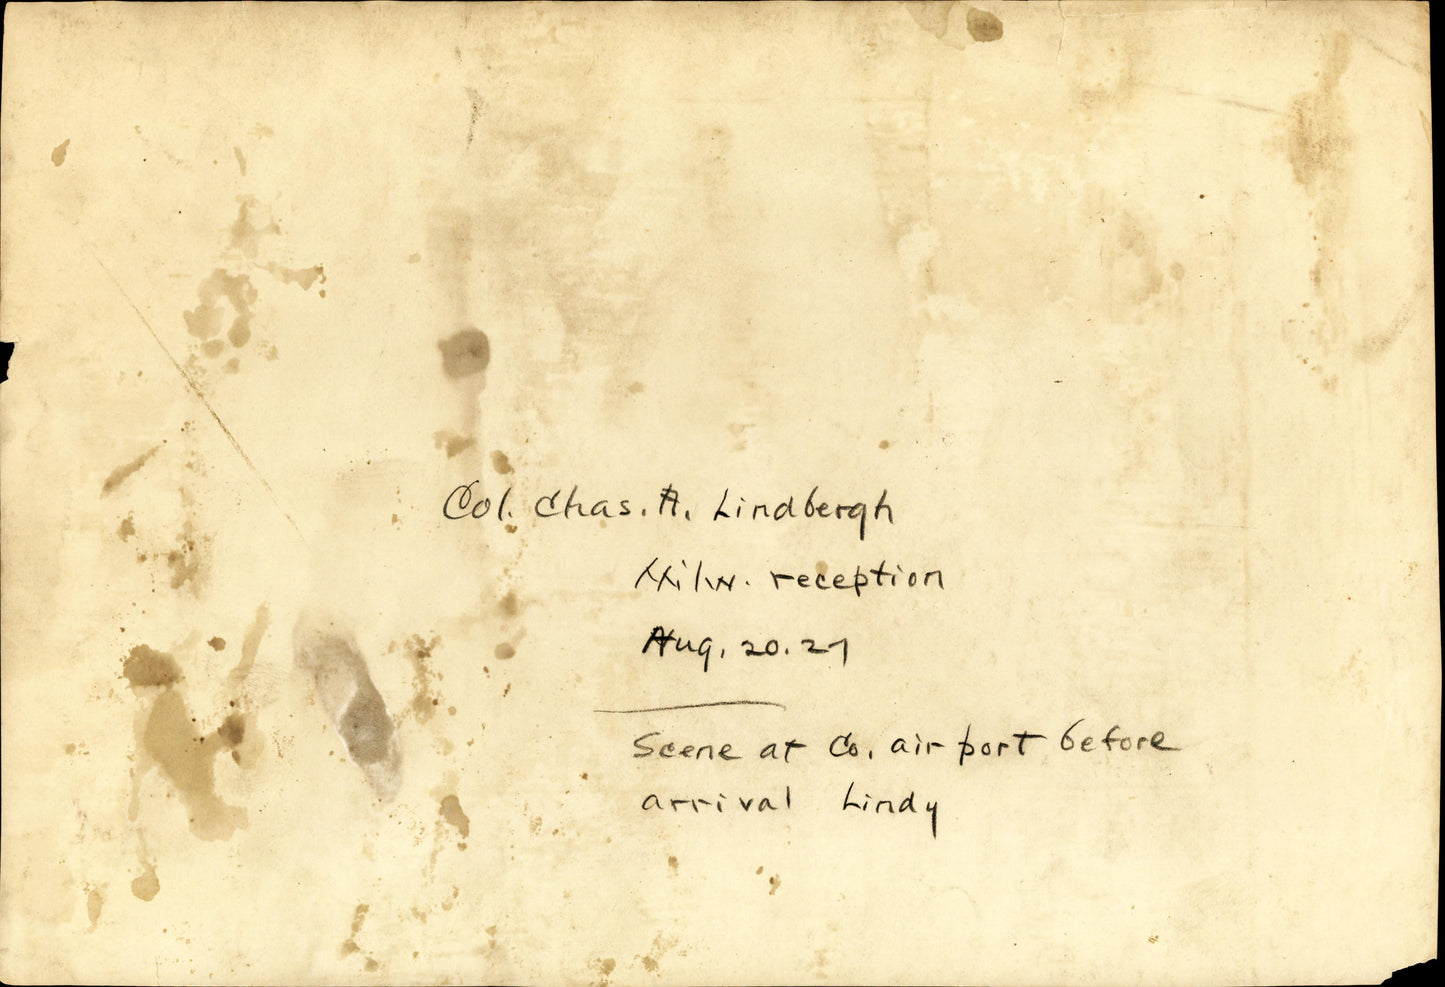 Col. Chas. A. Lindbergh
Milw. reception
Aug. 20. 27
Scene at Co. air port before
arrival Lindy